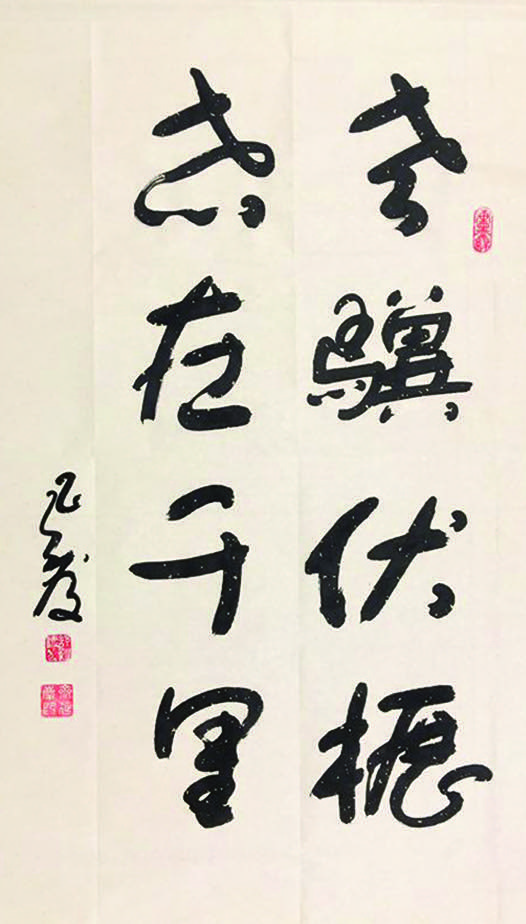 老骥伏枥
志在千里